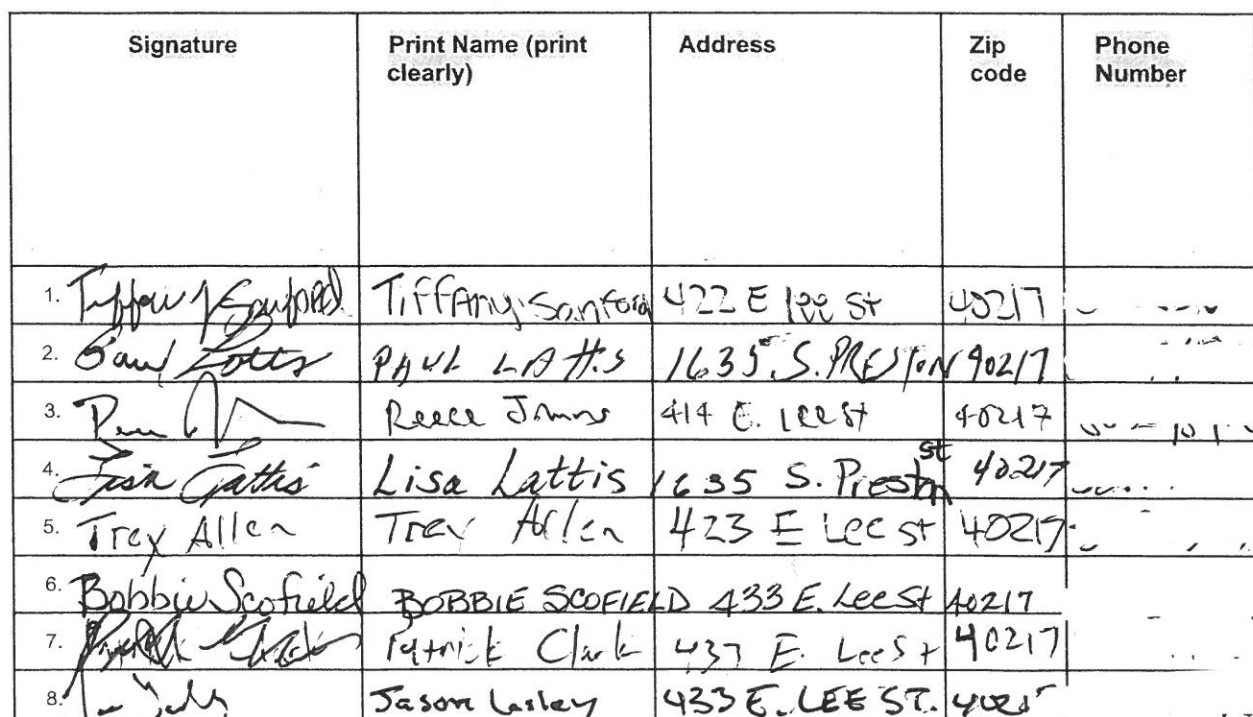 Signature Print Name (print clearly) Address Zip code Phone Number
1. Tiffany Sanford 422 E lee st 40217
2. PAUL LATTIS 1635 S. PRESTON 40217
3. Reece 414 E. lee st 40217
4. Lisa Lattis Lisa Lattis 1635 S. Preston st 40217
5. Trey Allen Trey Allen 423 E Lee st 40217
6. Bobbie Scofield BOBBIE SCOFIELD 433 E. Lee St 40217
7. Patrick Clark 437 E. Lee St 40217
8. Jason Lasley 433 E. LEE ST.